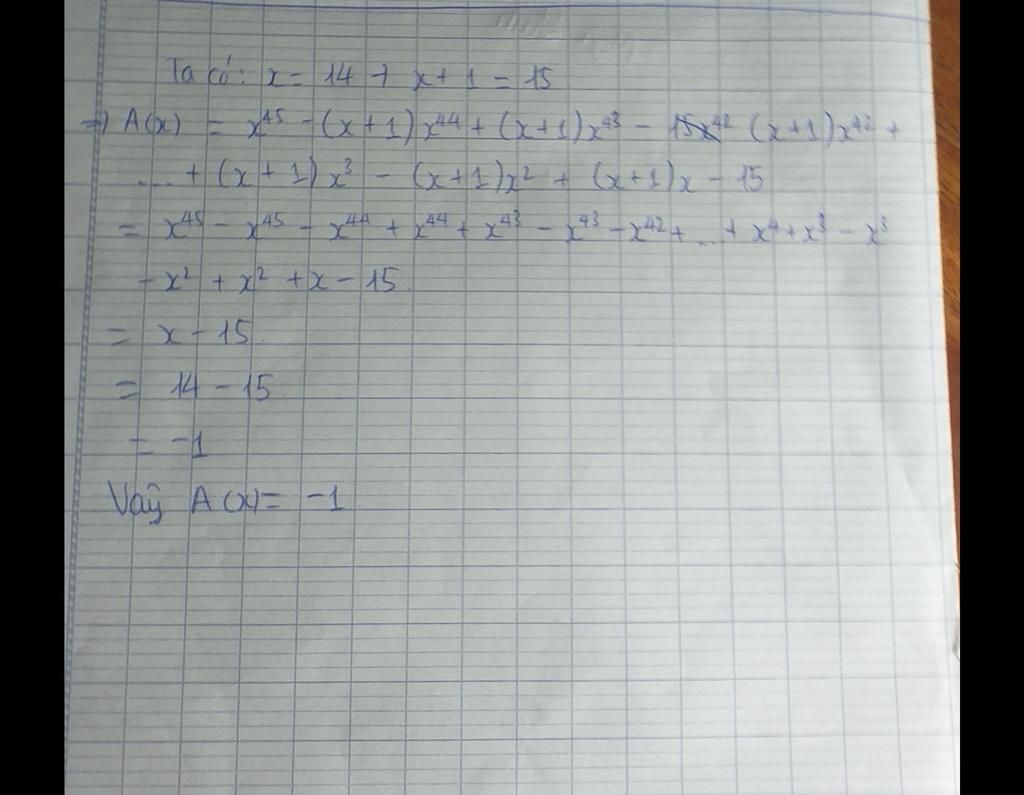 Ta có: x = 14 → x + 1 = 15
=> A(x) = x⁴⁵ - (x+1)x⁴⁴ + (x+1)x⁴³ - 15x⁴² (x+1)x⁴² +
.... + (x+1)x³ - (x+1)x² + (x+1)x - 15
= x⁴⁵ - x⁴⁵ - x⁴⁴ + x⁴⁴ + x⁴³ - x⁴³ - x⁴² + ... + x⁴ + x³ - x³
- x² + x² + x - 15
= x - 15
= 14 - 15
= -1
Vậy A(x) = -1